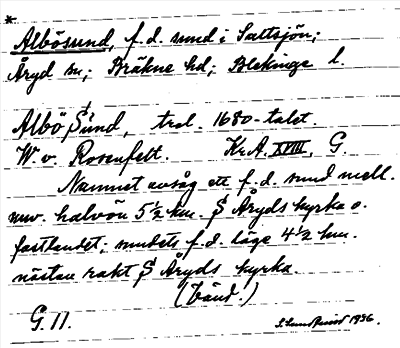 *
Albösund, f.d. sund i Saltsjön;
Åryd sn; Bräkne hd; Blekinge l.
Albö Sund, trol. 1680-talet.
W. v. Rosenfelt. Kr.A. XVIII, G.
Namnet avsåg ett f.d. sund mell.
nuv. halvön 5 ½ km. S Åryds kyrka o.
fastlandet; sundets f.d. läge 4 ½ km.
nästan rakt S Åryds kyrka.
(Vänd.)
G. 11. 1936.